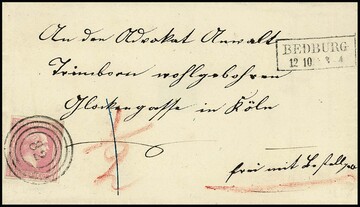 An den Advokat Anwalt
BEDBURG
12 10 3-4
Trimborn wohlgeboren
Glockengasse in Köln
82
frei mit Bestellgeld